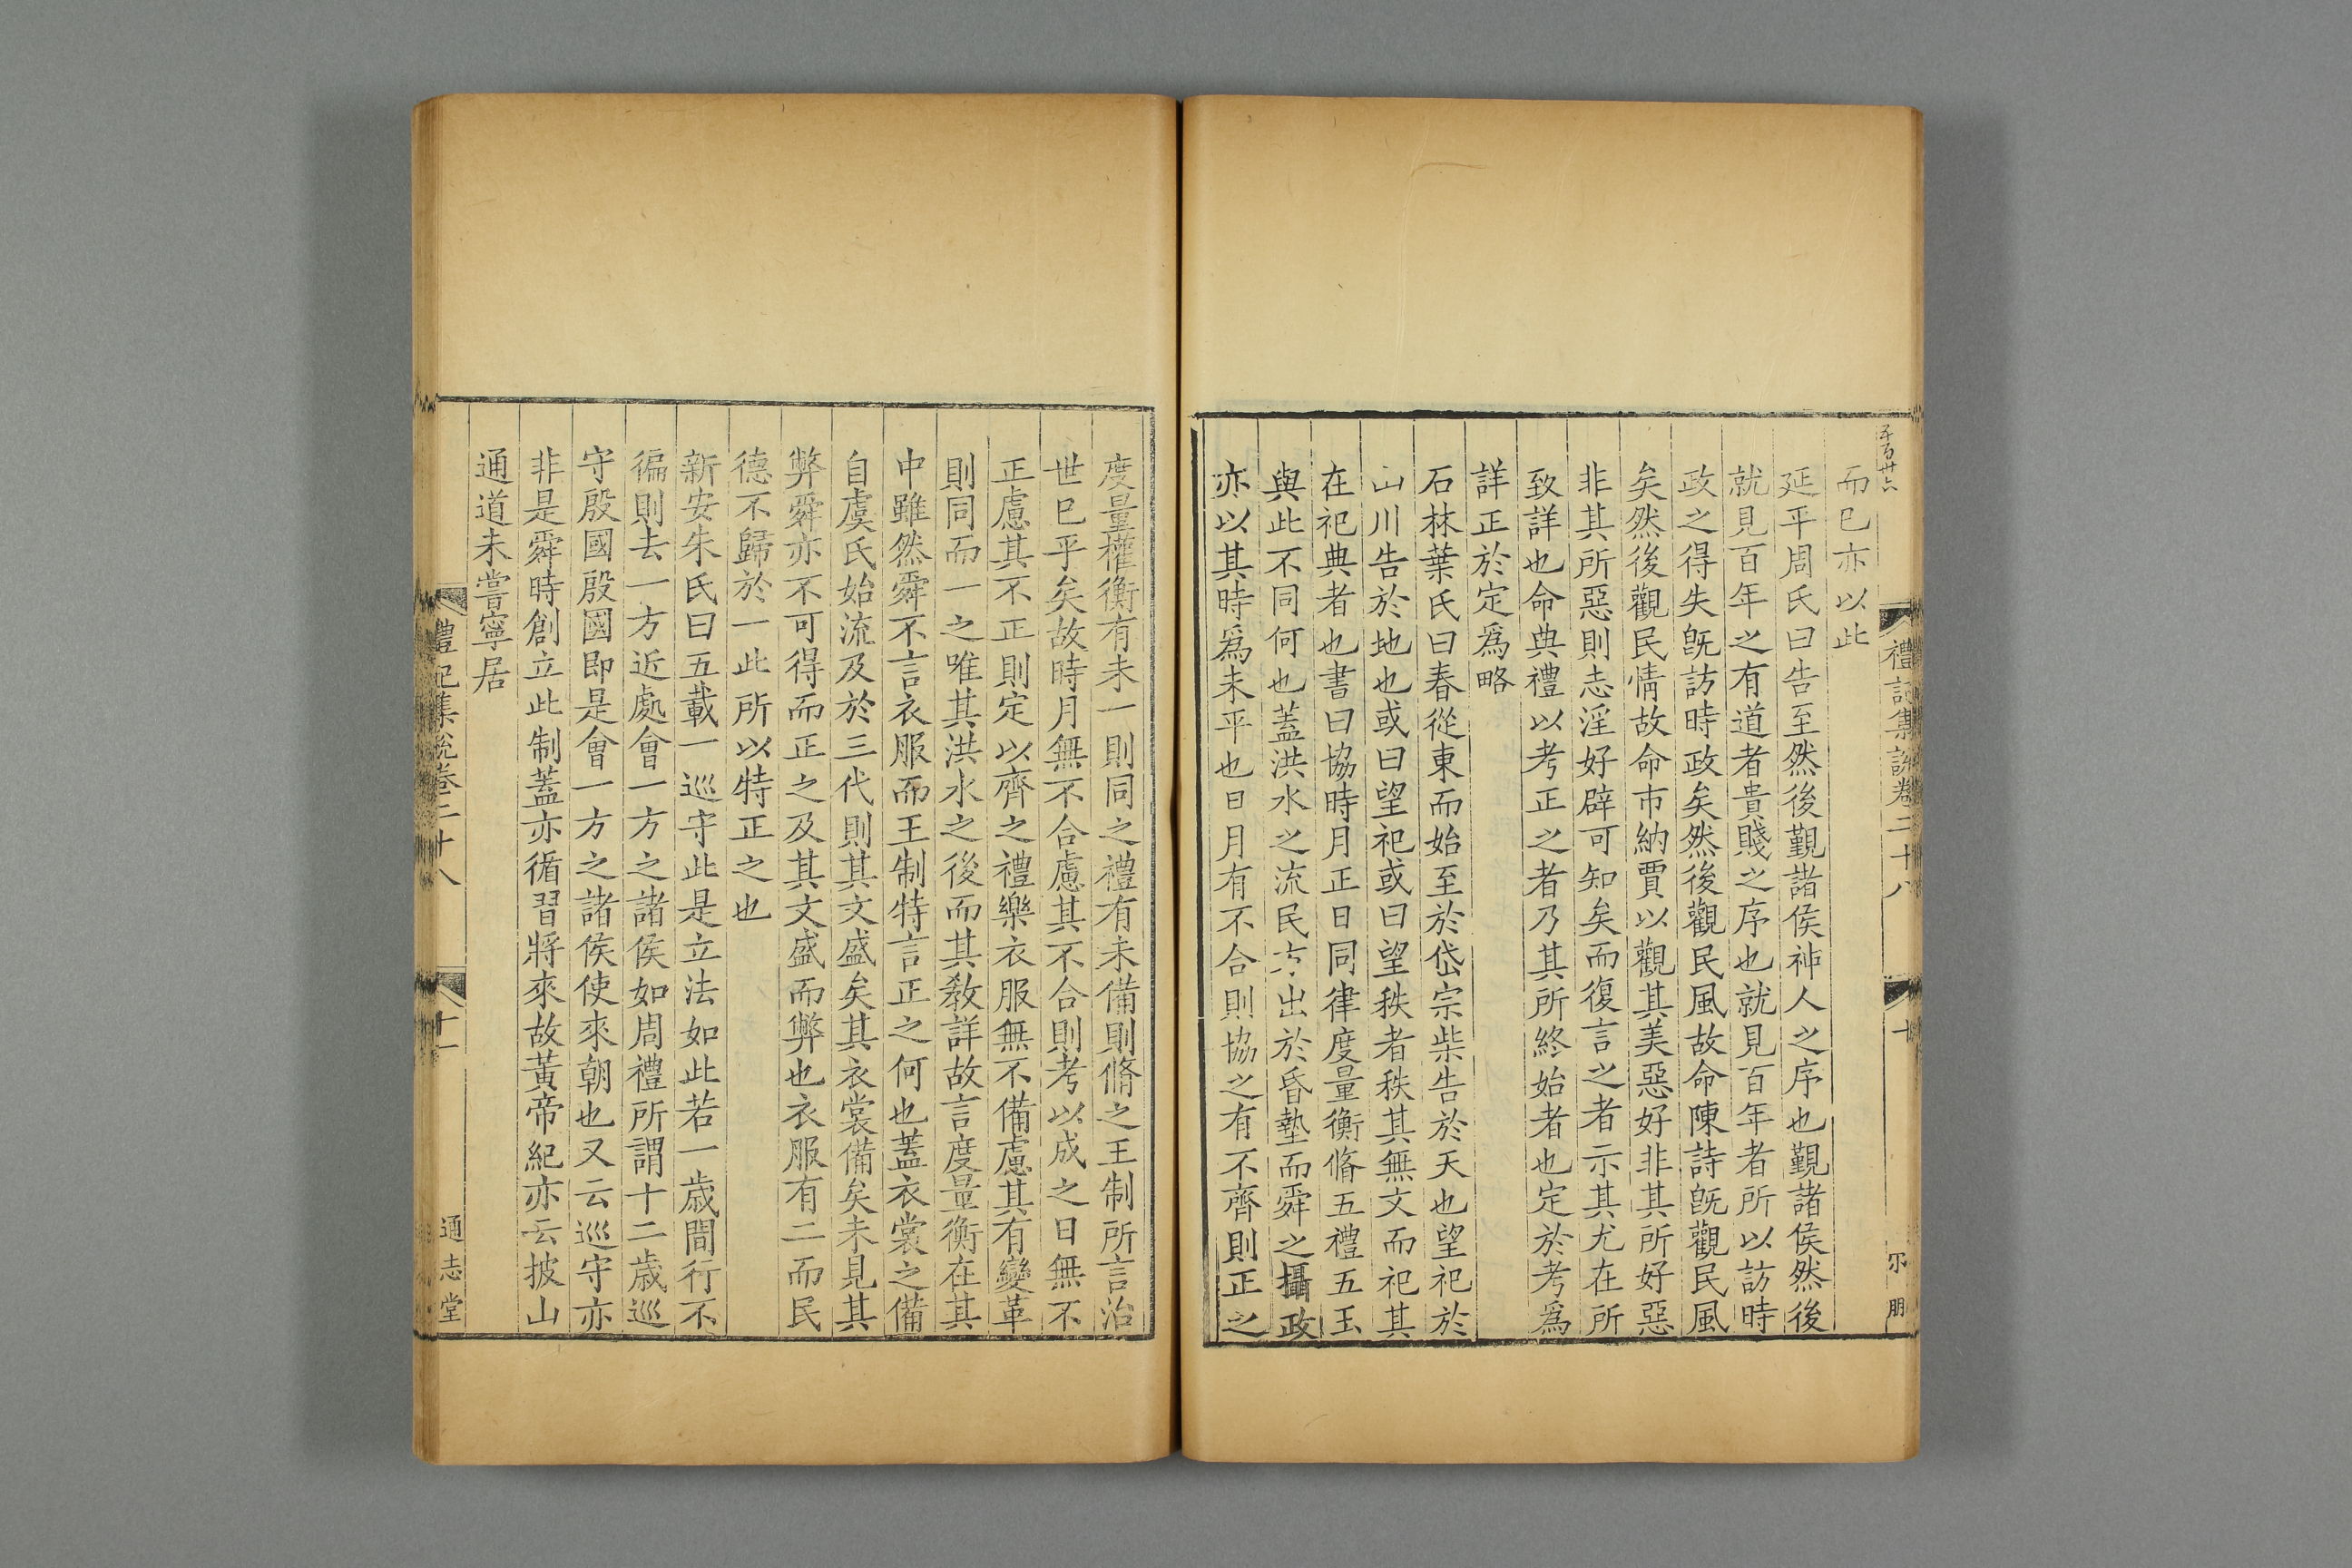 禮記集說卷二十八
十
而巳亦以此
延平周氏曰告至然後覲諸侯神人之序也覲諸侯然後
就見百年之有道者貴賤之序也就見百年者所以訪時
政之得失旣訪時政矣然後觀民風故命陳詩旣觀民風
矣然後觀民情故命市納賈以觀其美惡好非其所好惡
非其所惡則志淫好辟可知矣而復言之者示其尤在所
致詳也命典禮以考正之者乃其所終始者也定於考爲
詳正於定爲略
石林葉氏曰春從東而始至於岱宗柴告於天也望祀於
山川告於地也或曰望祀或曰望秩者秩其無文而祀其
在祀典者也書曰協時月正日同律度量衡脩五禮五玉
與此不同何也蓋洪水之流民方出於昏墊而舜之攝政
亦以其時爲未平也日月有不合則協之有不齊則正之
度量權衡有未一則同之禮有未備則脩之王制所言治
世巳乎矣故時月無不合慮其不合則考以成之日無不
正慮其不正則定以齊之禮樂衣服無不備慮其有變革
則同而一之唯其洪水之後而其敎詳故言度量衡在其
中雖然舜不言衣服而王制特言正之何也蓋衣裳之備
自虞氏始流及於三代則其文盛矣其衣裳備矣未見其
弊舜亦不可得而正之及其文盛而弊也衣服有二而民
德不歸於一此所以特正之也
新安朱氏曰五載一巡守此是立法如此若一歲間行不
徧則去一方近處會一方之諸侯如周禮所謂十二歲巡
守殷國殷國即是會一方之諸侯使來朝也又云巡守亦
非是舜時創立此制蓋亦循習將來故黃帝紀亦云披山
通道未嘗寧居
禮記集說卷二十八
十一
通志堂